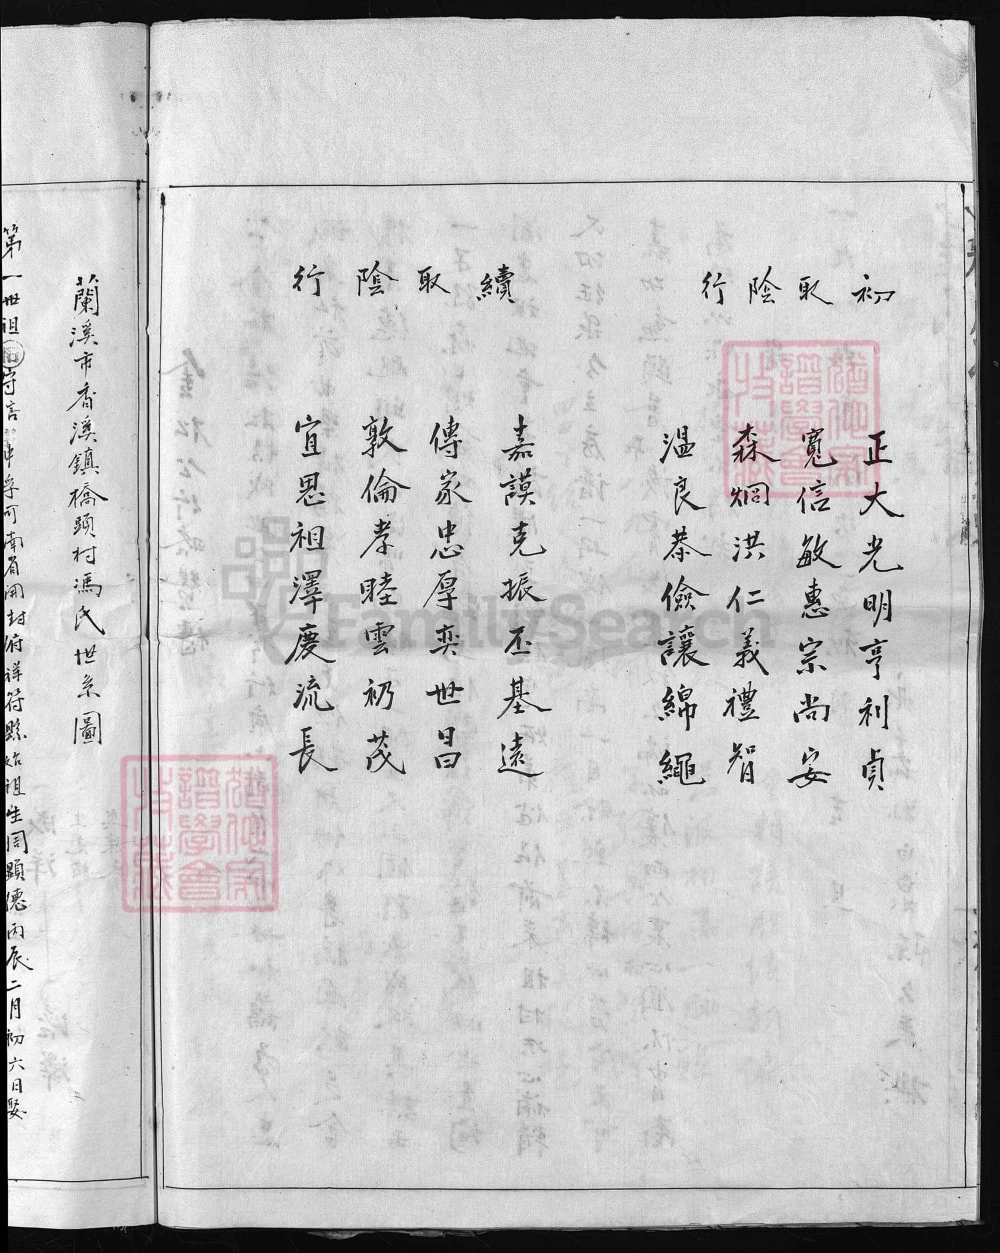 初取陰行
正大光明亨利貞
寬信敏惠宗尚安
森炯洪仁義禮智
温良恭儉讓綿繩
續取陰行
嘉謨克振丕基遠
傳家忠厚奕世昌
敦倫孝睦雲礽茂
宜思祖澤慶流長
蘭溪市香溪鎮橋頭村馮氏世系圖
第一世祖 守信 河南省開封府祥符縣始祖生周顯德丙辰二月初六日娶
FamilySearch